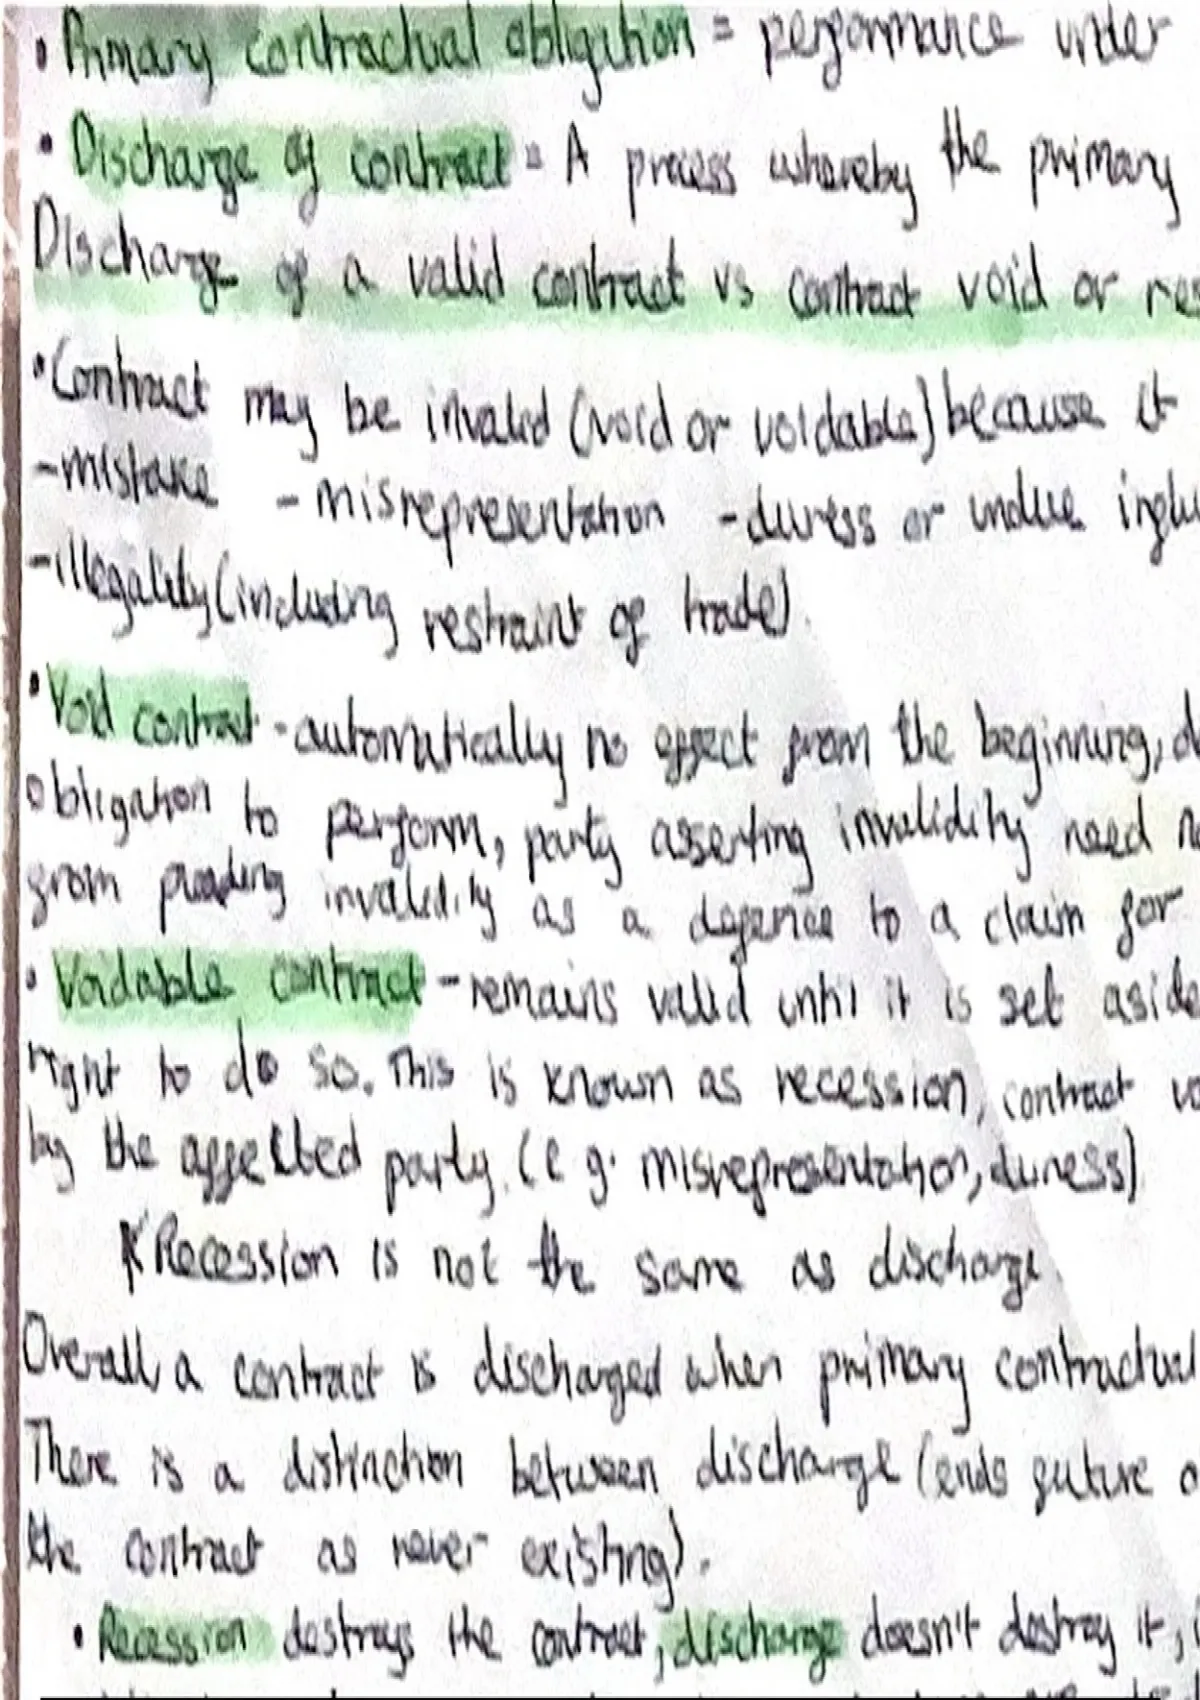 • Primary contractual obligation = performance under
• Discharge of contract = A process whereby the primary
Discharge of a valid contract vs contract void or res
• Contract may be invalid (void or voidable) because it
- mistake - misrepresentation - duress or undue influ
- illegality (including restraint of trade)
• Void contract - automatically no effect from the beginning, d
obligation to perform, party asserting invalidity need n
from pleading invalidity as a defence to a claim for
• Voidable contract - remains valid until it is set aside
right to do so. This is known as recession, contract vo
by the affected party. (e.g. misrepresentation, duress)
* Recession is not the same as discharge.
Overall a contract is discharged when primary contractual
There is a distinction between discharge (ends future o
the contract as never existing).
• Recession destroys the contract, discharge doesn't destroy it,